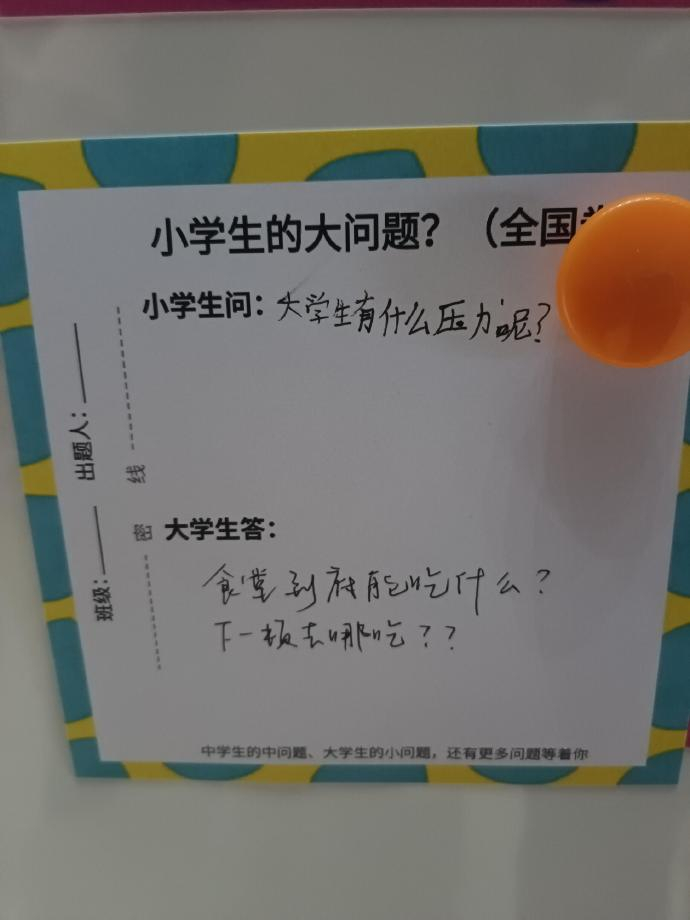 小学生的大问题？（全国
小学生问：大学生有什么压力呢？
出题人：
线
密
班级：
大学生答：
食堂到底能吃什么？
下一顿去哪吃？？
中学生的中问题、大学生的小问题，还有更多问题等着你